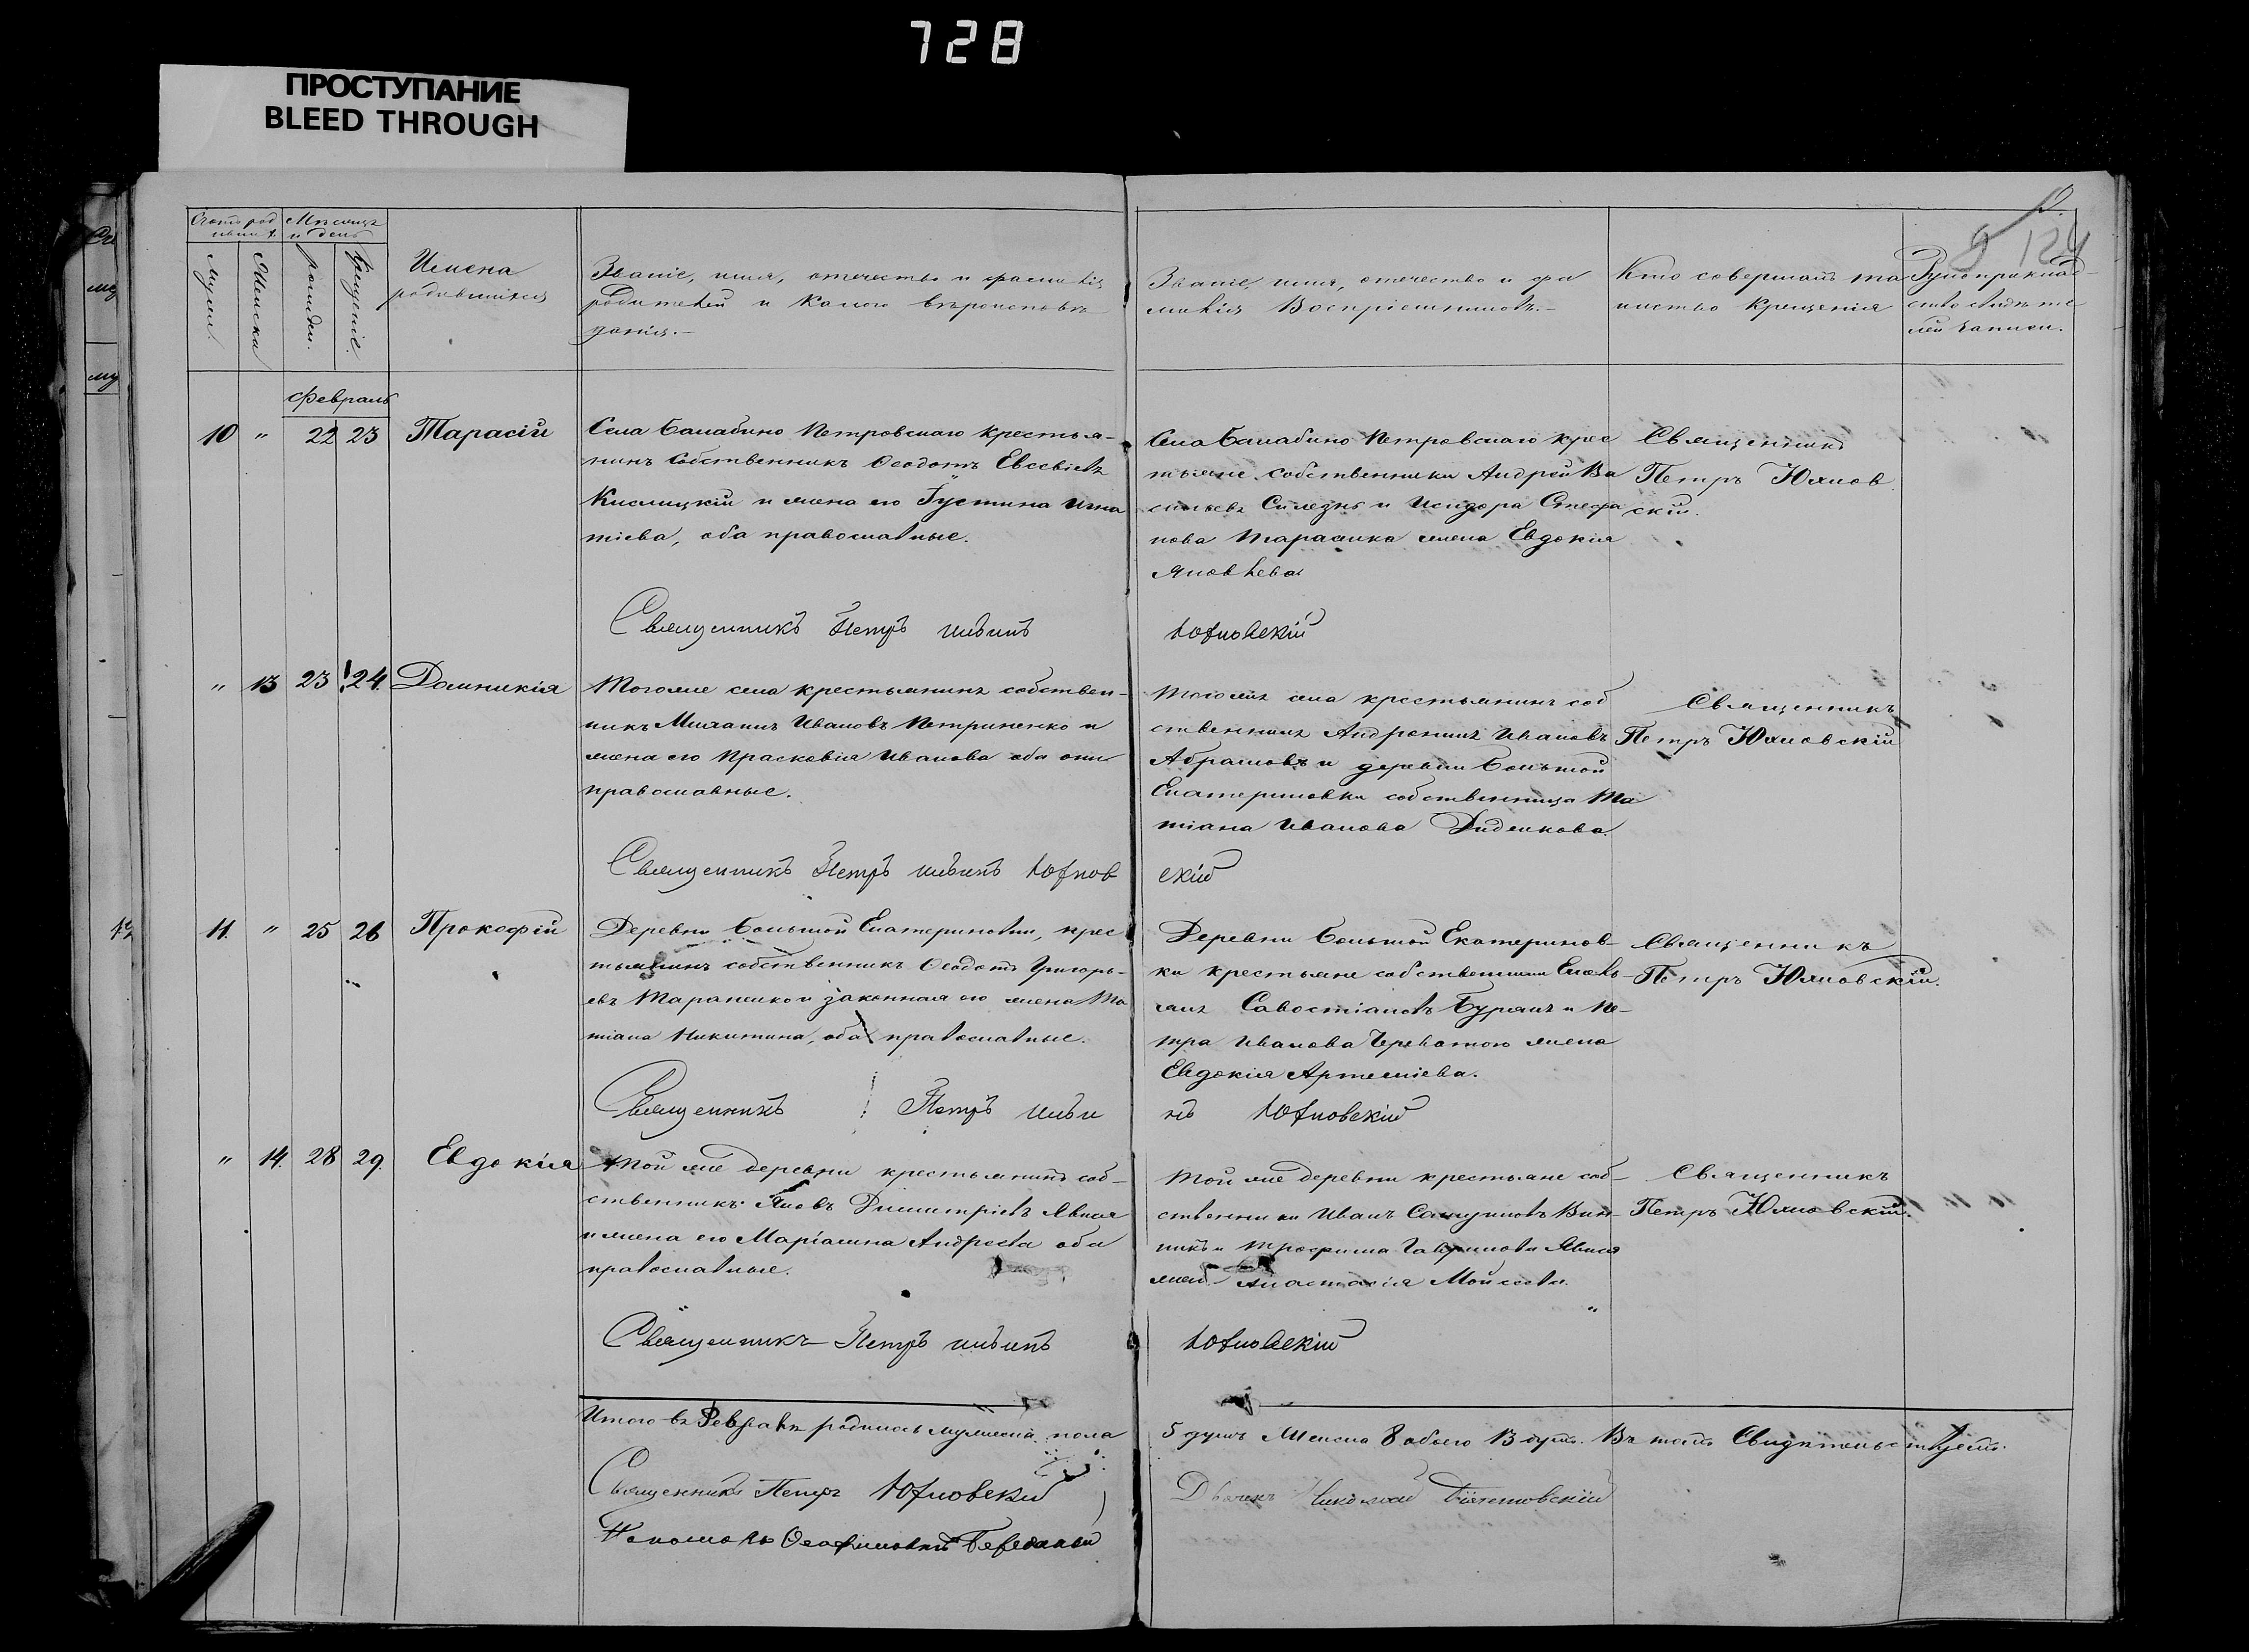 728
ПРОСТУПАНИЕ
BLEED THROUGH
124
Счетъ род Мѣсяцъ
и день
Мужеска.
Женска
рожден.
Крещенія.
Имена
родившихся
Званіе, имя, отечество и фамилія
родителей и какого вѣроисповѣ
данія.-
Званіе, имя, отечество и фа
милія Воспріемниковъ.-
Кто совершалъ та
инство крещенія
Рукоприклад-
ство свидѣте
лей записи.
Февраль
10 " 22 23 Тарасій
Села Балабино Петровскаго крестья-
нинъ собственникъ Ѳеодотъ Евсевіевъ
Кислицкій и жена его Іустина Игна
тіева, оба православные.
Села Балабино Петровскаго крес
тьяне собственники Андрей Ва
сильевъ Силезнь и Исидора Стефа
нова Тарасика жена Евдокія
Яковлева
Священникъ
Петръ Юхнов
скій.
Священникъ Петръ Ильинъ Юхновскій
" 13 23 24. Домникія
Тогоже села крестьянинъ собствен-
никъ Михаилъ Ивановъ Петриненко и
жена его Прасковія Иванова оба они
православные.
Тогожъ села крестьянинъ соб
ственникъ Андроникъ Ивановъ
Абрамовъ и деревни Большой
Екатериновки собственница Та
тіана Иванова Диденкова.
Священникъ
Петръ Юхновскій
Священникъ Петръ Ильинъ Юхнов скій
11. " 25 26 Прокофій
Деревни Большой Екатериновки, крес
тьянинъ собственникъ Ѳеодотъ Григорь-
евъ Тараненко и законная его жена Та
тіана Никитина, оба православные.
Деревни Большой Екатеринов-
ки крестьяне собственники Емель-
янъ Савостіановъ Бурякъ и Пе-
тра Иванова Череватого жена
Евдокія Артеміева.
Священникъ
Петръ Юхновскій.
Священникъ Петръ Ильи нъ Юхновскій
" 14. 28 29. Евдокія
Той же деревни крестьянинъ соб-
ственникъ Яковъ Димитріевъ Явися
и жена его Маріамна Андреева оба
православные.
Той же деревни крестьяне соб-
ственники Иванъ Самуиловъ Вин-
никъ и Трофима Гаврилова Явися
жена Анастасія Мойсеева.
Священникъ
Петръ Юхновскій.
Священникъ Петръ Ильинъ Юхновскій
Итого въ Февралѣ родилось мужеска пола
5 душъ Женска 8 обоего 13 душъ. Въ томъ Свидѣтельствуемъ.
Священникъ Петръ Юхновскій
Дьячекъ Николай
Пономарь